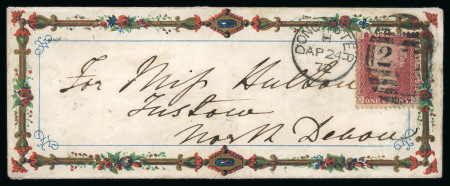 DONCASTER
AP 24
72
2
ONE PENNY
For Miss Hulton
Instow
North Devon